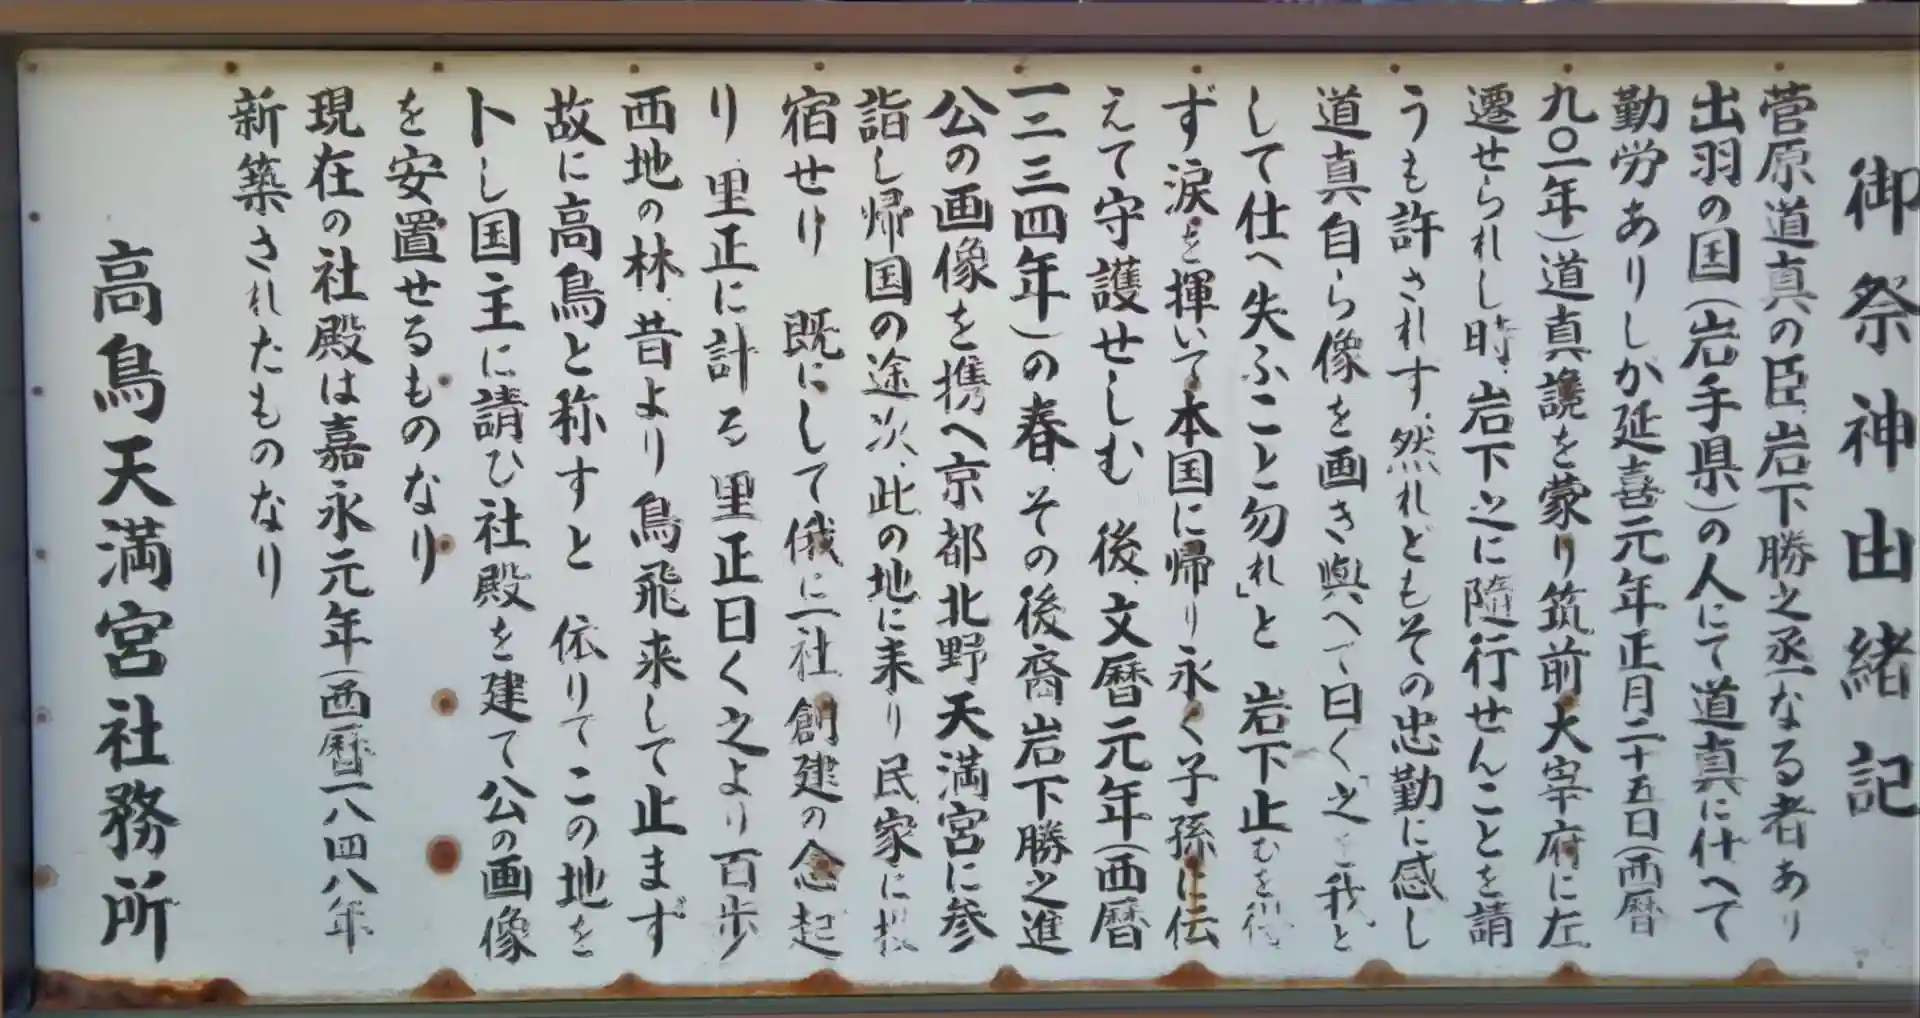 御祭神由緒記
菅原道真の臣岩下勝之丞なる者あり
出羽の国(岩手県)の人にて道真に仕へて
勤労ありしが延喜元年正月二十五日(西暦
九〇一年)道真讒を蒙り筑前大宰府に左
遷せられし時、岩下之に随行せんことを請
うも許されす、然れどもその忠勤に感し
道真自ら像を画き與へて曰く「之を我と
して仕へ失ふこと勿れ」と 岩下止むを得
ず涙を揮いて本国に帰り永く子孫に伝
えて守護せしむ 後、文暦元年(西暦
一二三四年)の春、その後裔岩下勝之進
公の画像を携へ京都北野天満宮に参
詣し帰国の途次、此の地に来り民家に投
宿せり 既にして俄に一社創建の念起
り 里正に計る 里正曰く之より百歩
西地の林、昔より鳥飛来して止まず
故に高鳥と称すと 依りてこの地を
卜し国主に請ひ社殿を建て公の画像
を安置せるものなり
現在の社殿は嘉永元年(西暦一八四八年
新築されたものなり
高鳥天満宮社務所